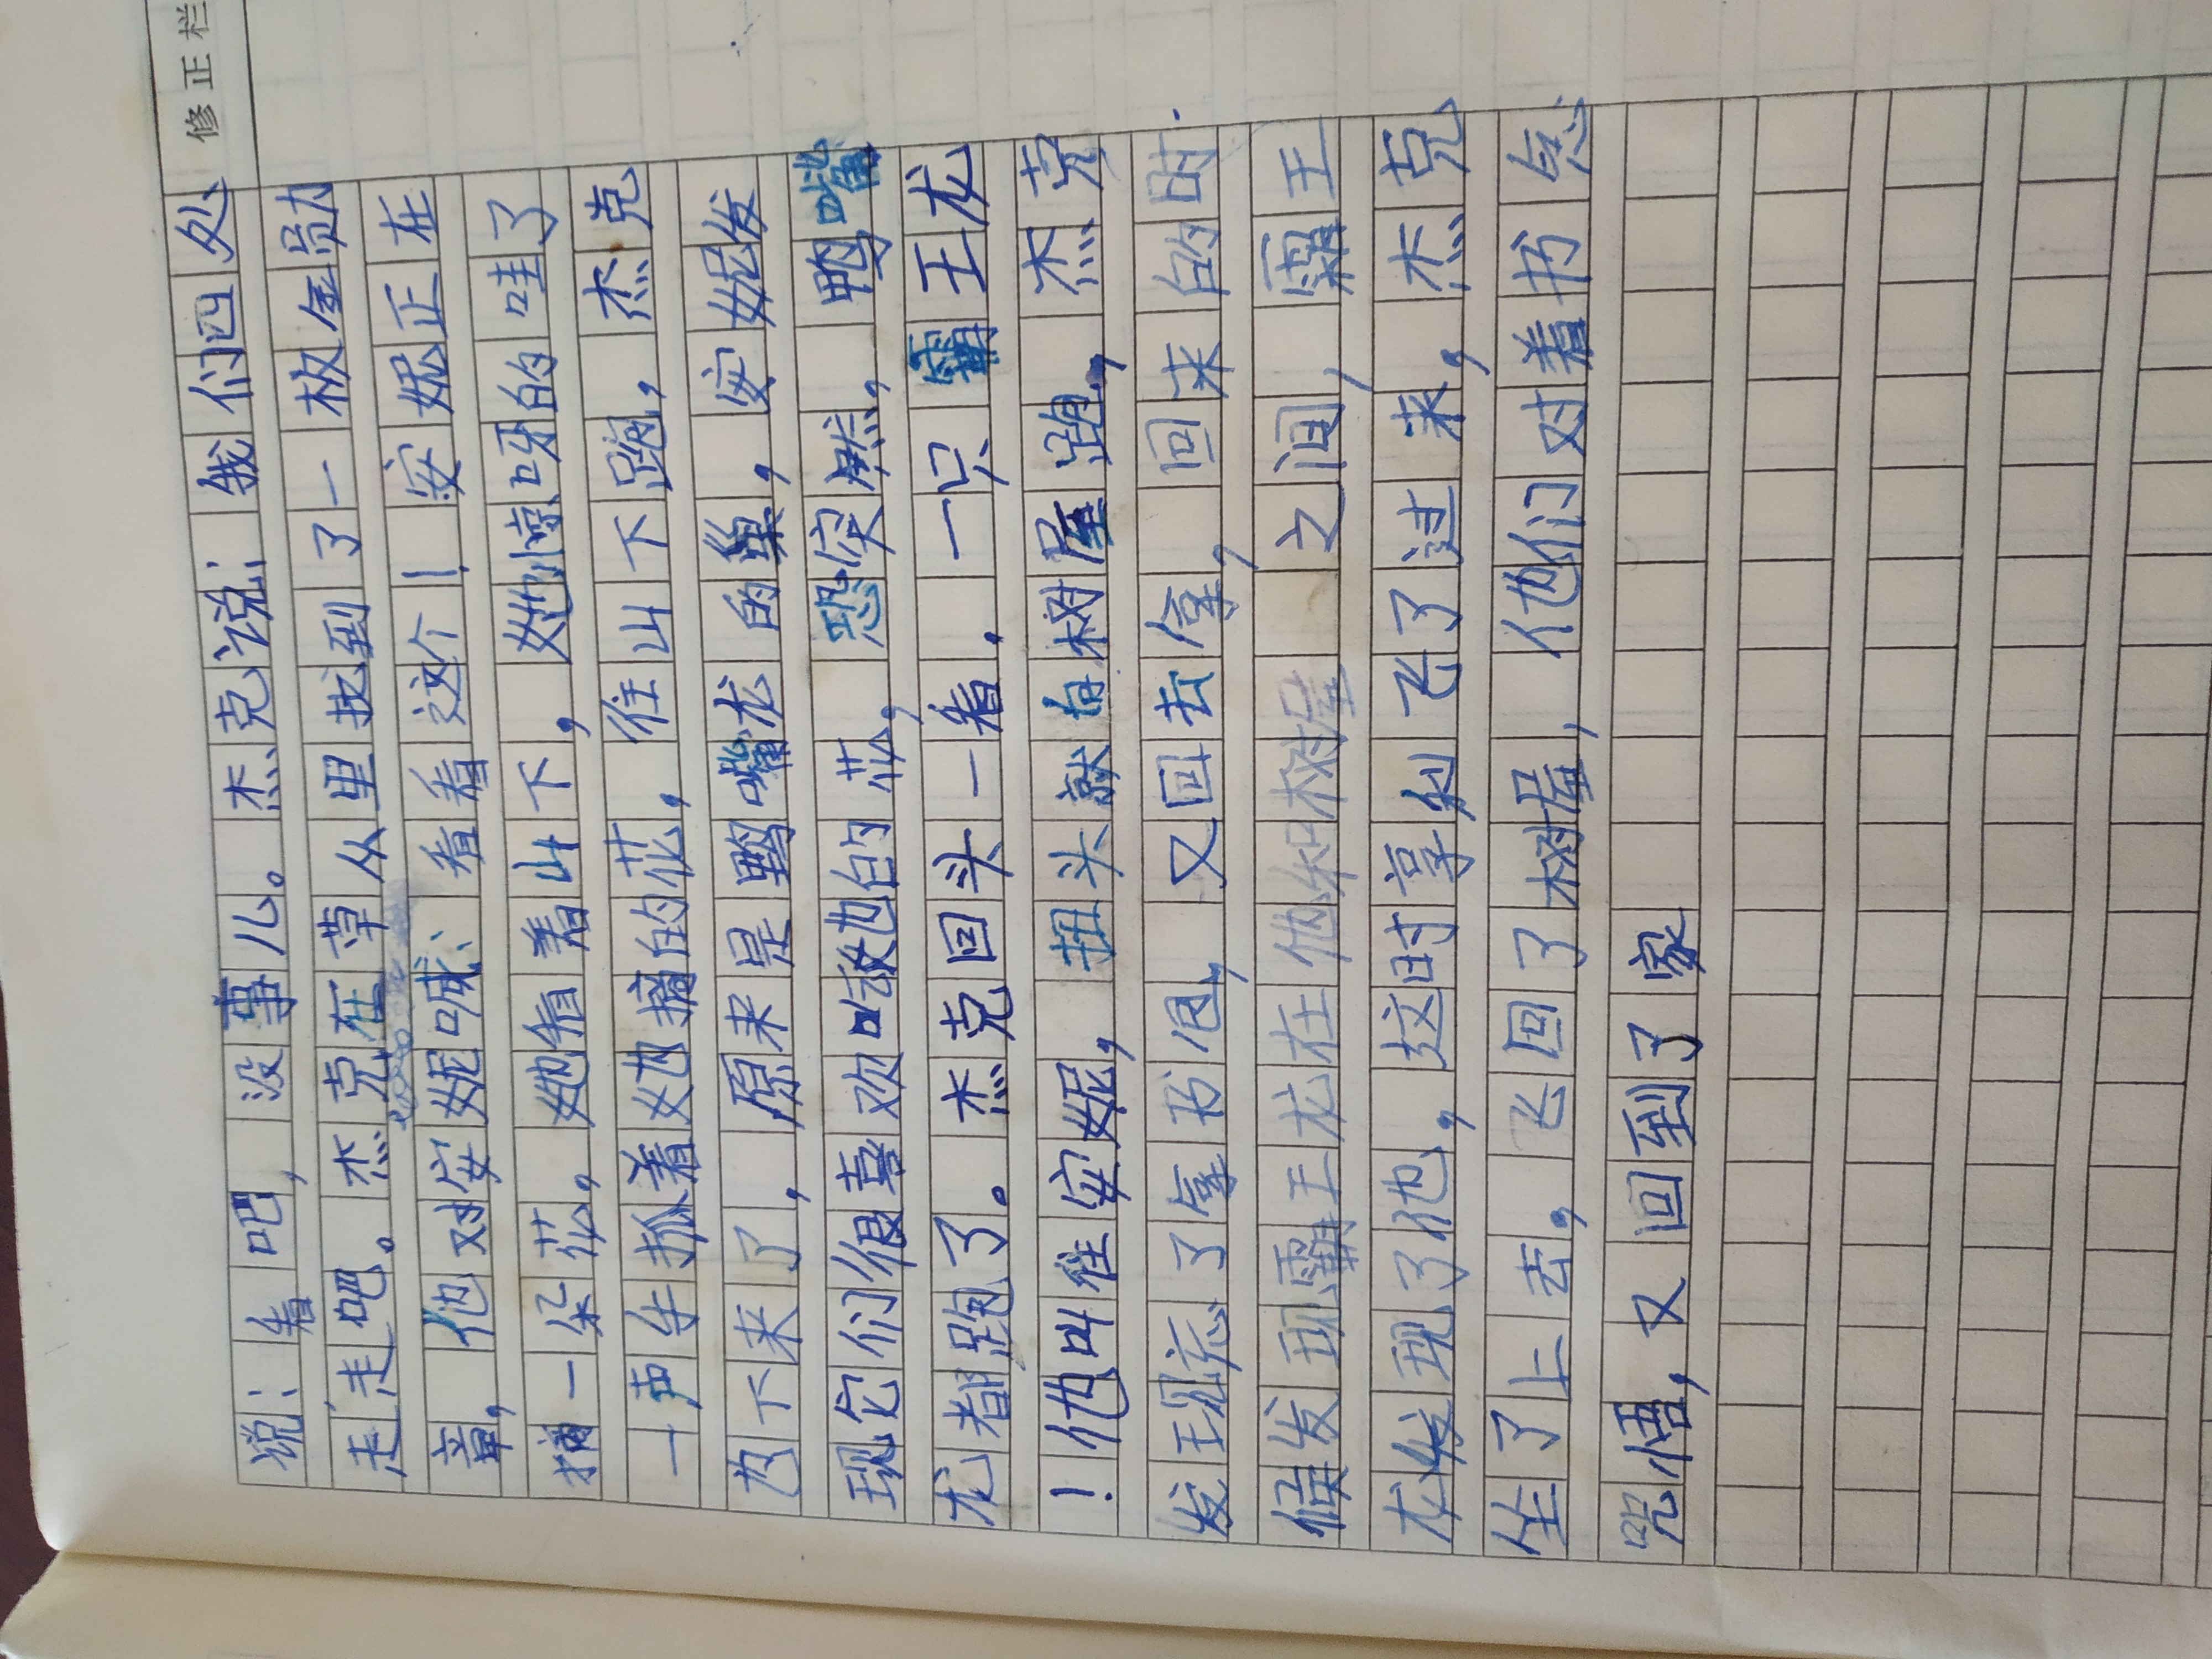 修正栏
说：看吧，没事儿。杰克说：我们四处
走走吧。杰克在草从里找到了一枚金员力
章，他对安妮喊：看看这个！安妮正在
摘一朵花。她看着山下，她惊呀的哇了
一声手抓着她摘的花，往山下跑，杰克
也下来了，原来是鸭嘴龙的巢，安妮发
现它们很喜欢吃她的花，恐突然，鸭嘴
龙都跑了。杰克回头一看，一只霸王龙
！他叫住安妮，扭头就向树屋跑，杰克
发现忘了拿书包，又回去拿，回来的时
候发现霸王龙在他和树屋之间，霸王
龙发现了他，这时亨利飞了过来，杰克
坐了上去，飞回了树屋，他们对着书念
咒悟，又回到了家